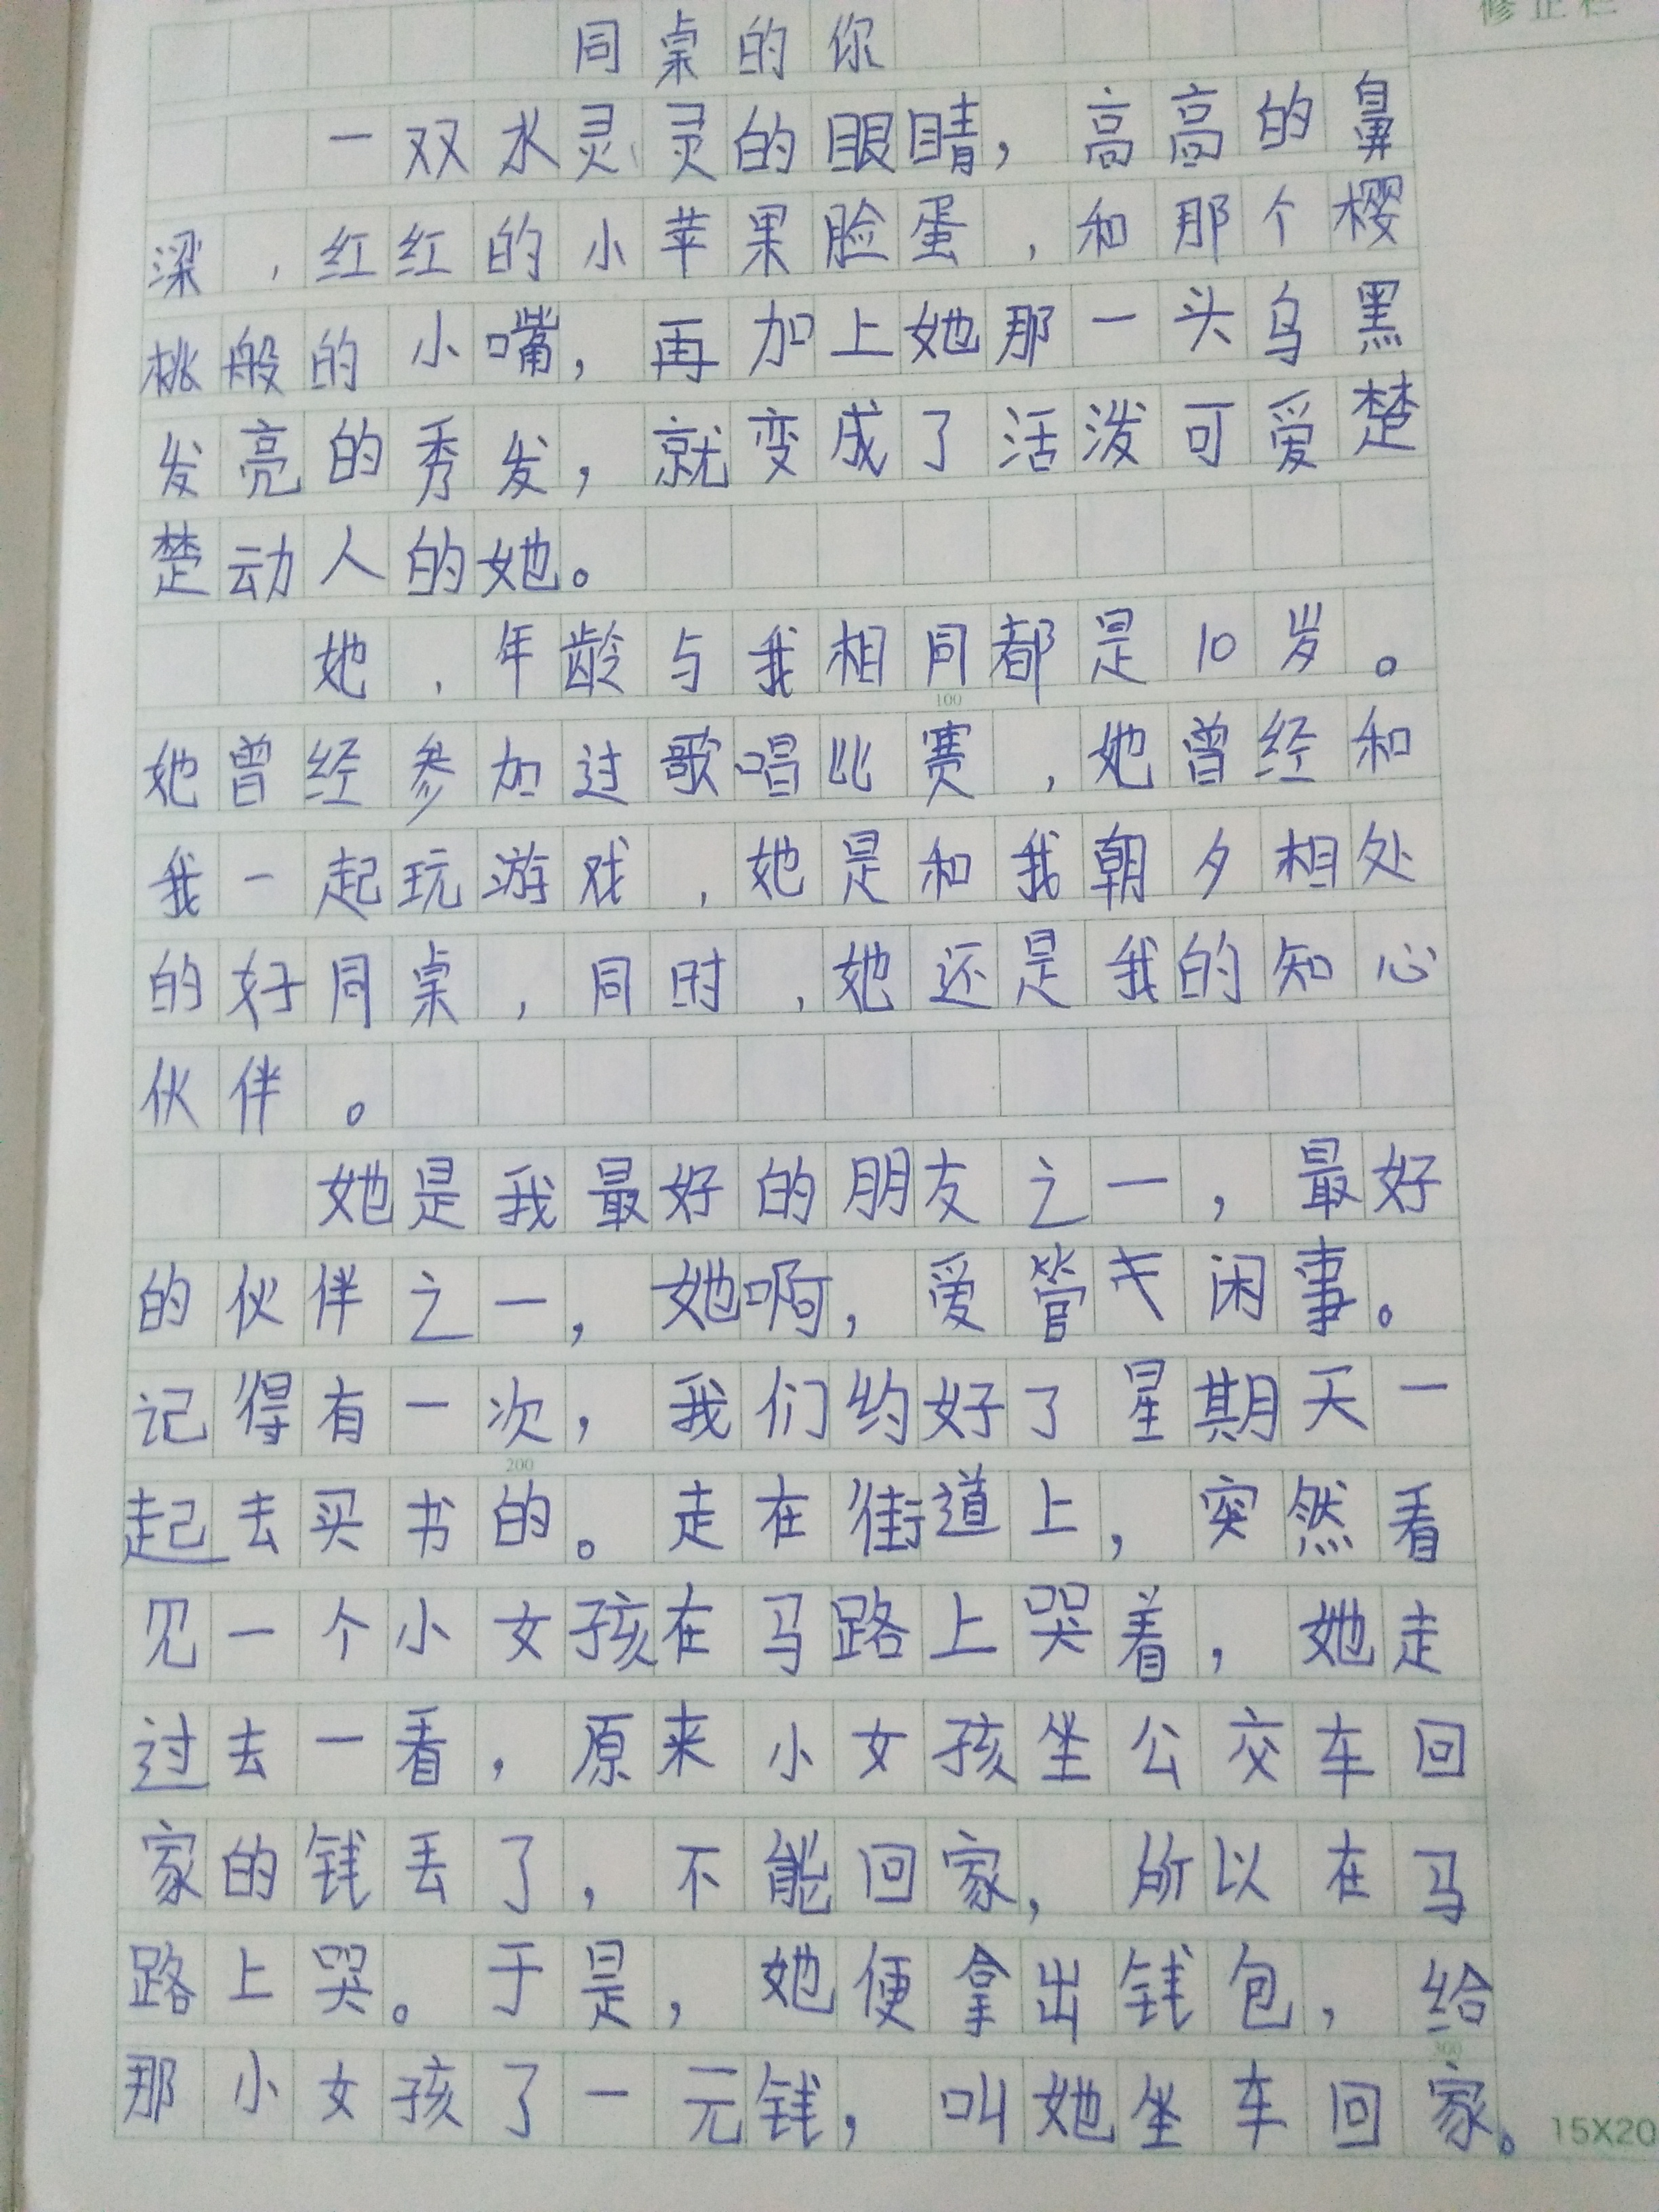 修正栏
同桌的你
一双水灵灵的眼睛，高高的鼻
梁，红红的小苹果脸蛋，和那个樱
桃般的小嘴，再加上她那一头乌黑
发亮的秀发，就变成了活泼可爱楚
楚动人的她。
她，年龄与我相同都是10岁。
100
她曾经参加过歌唱比赛，她曾经和
我一起玩游戏，她是和我朝夕相处
的好同桌，同时，她还是我的知心
伙伴。
她是我最好的朋友之一，最好
的伙伴之一，她啊，爱管闲事。
记得有一次，我们约好了星期天一
200
起去买书的。走在街道上，突然看
见一个小女孩在马路上哭着，她走
过去一看，原来小女孩坐公交车回
家的钱丢了，不能回家，所以在马
路上哭。于是，她便拿出钱包，给
300
那小女孩了一元钱，叫她坐车回家。
15X20